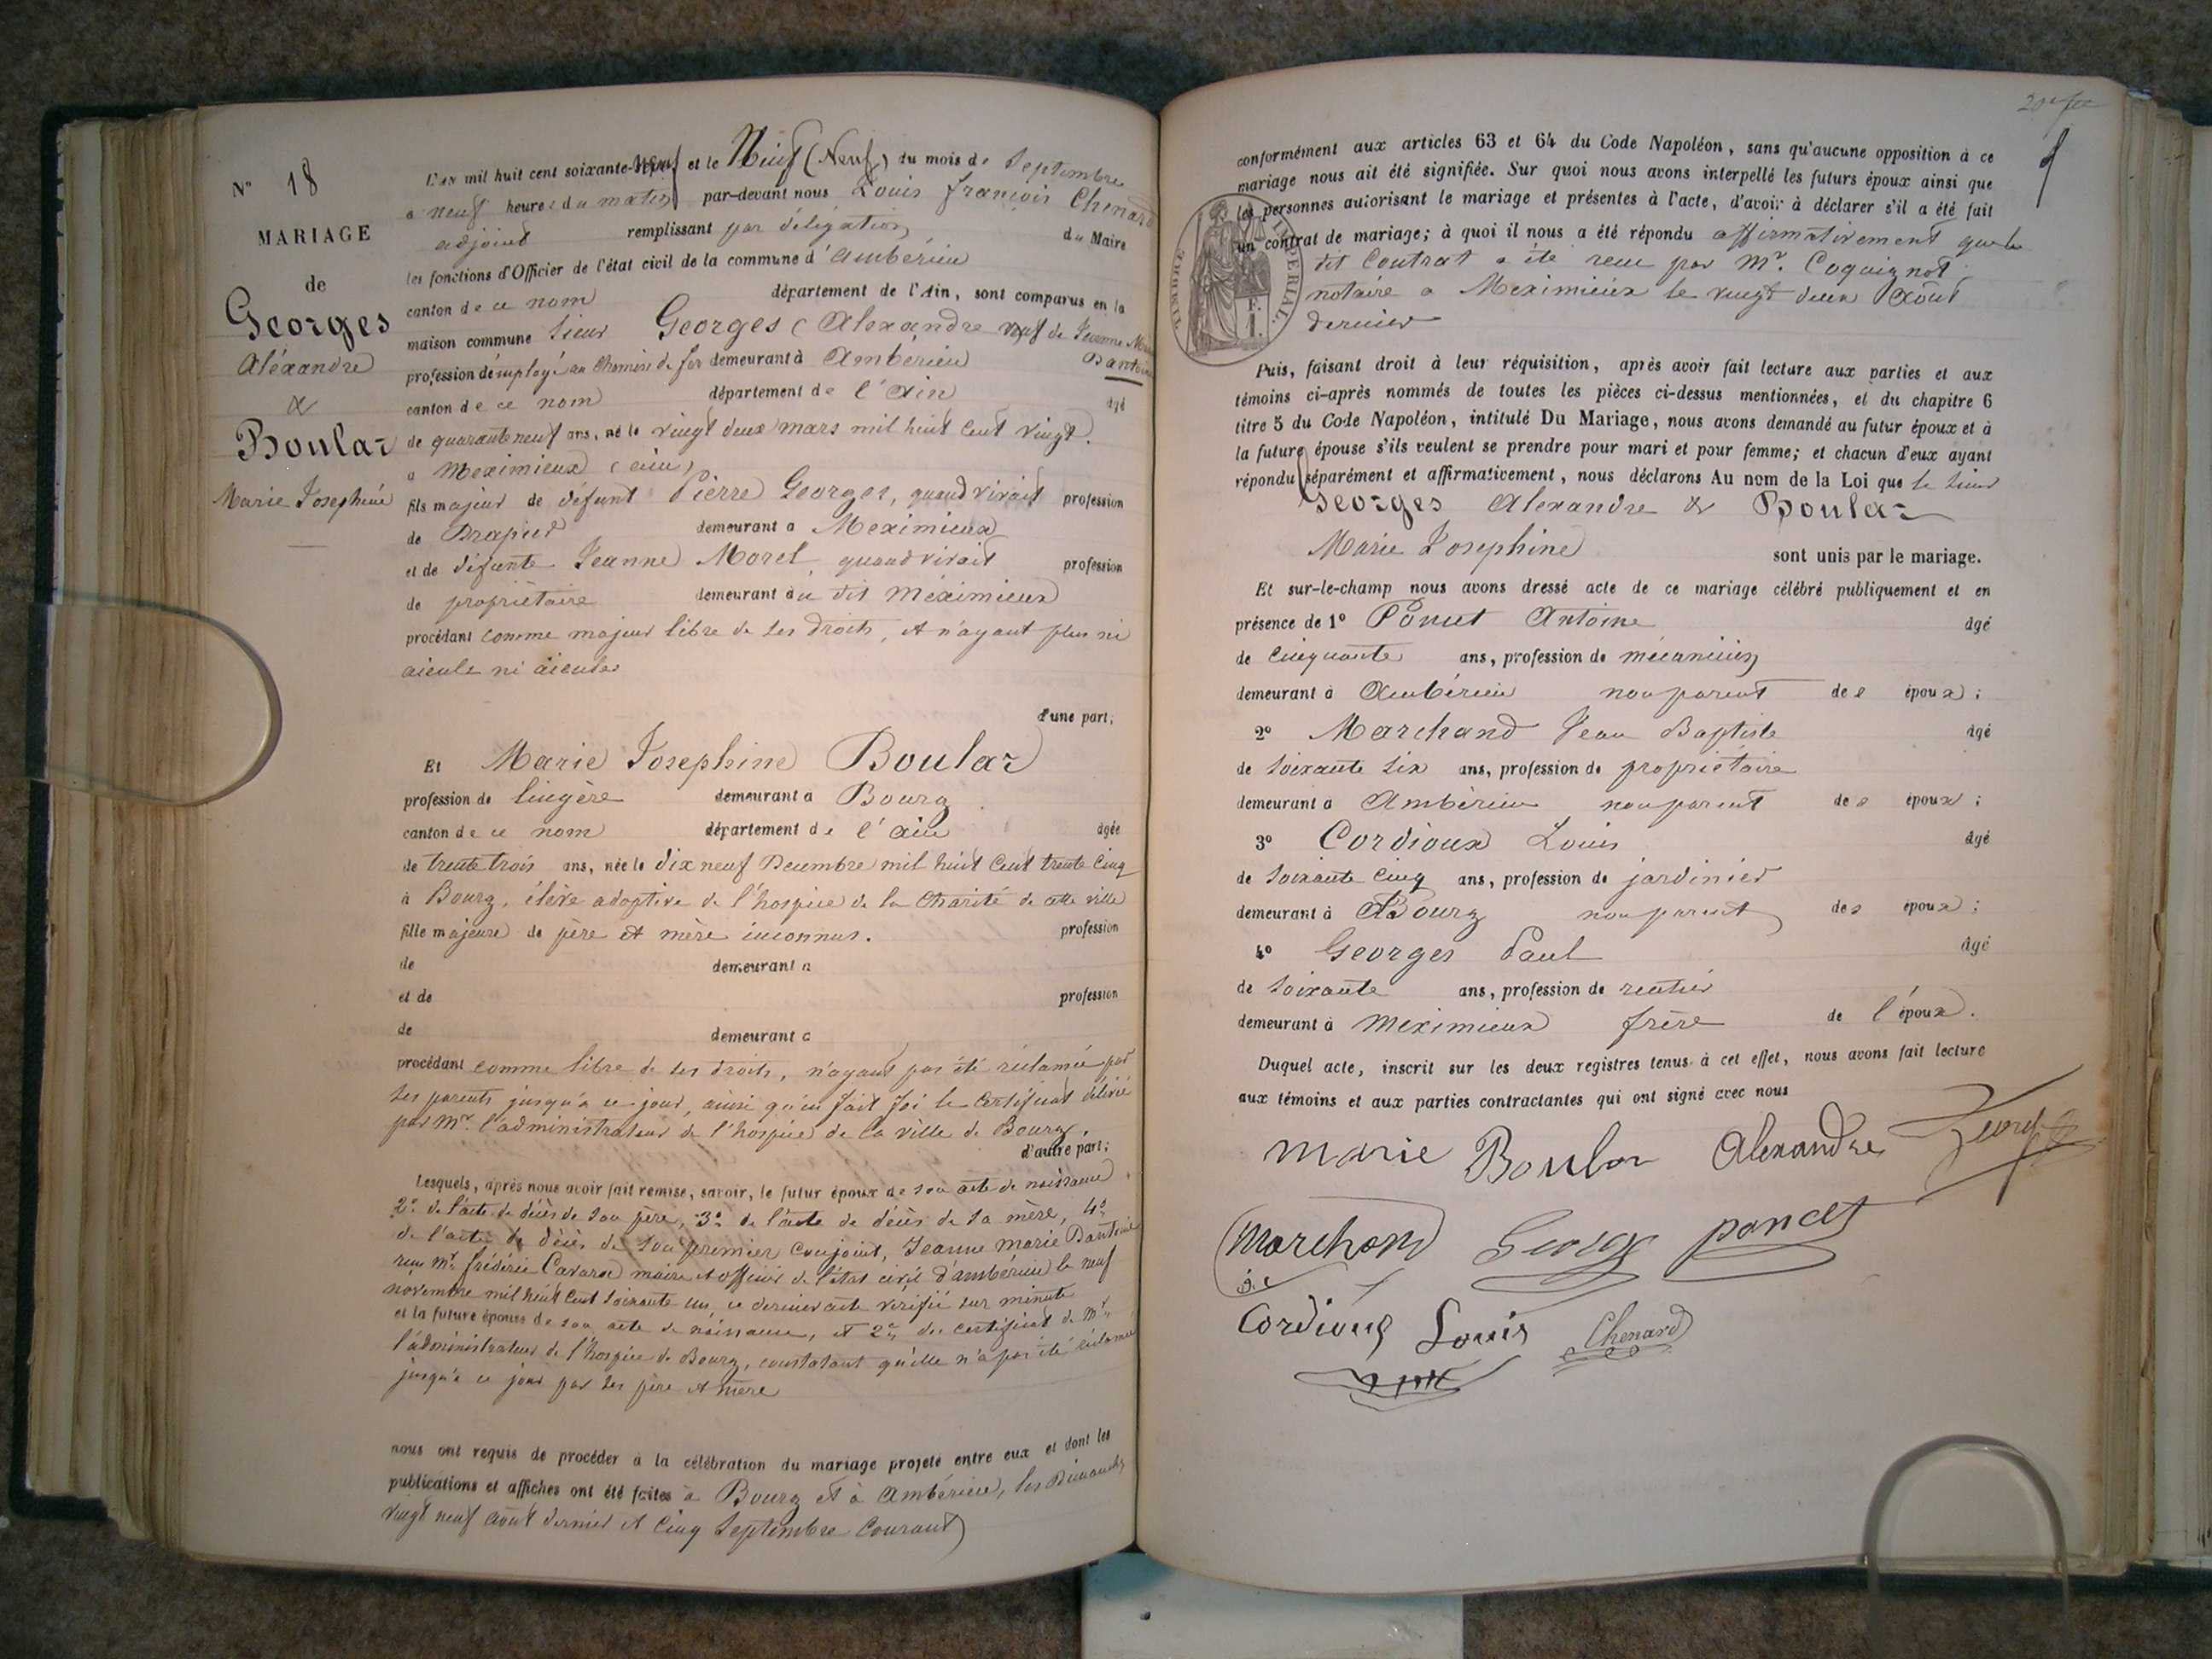 N° 18
MARIAGE
de
Georges
Aléxandre
&
Boular
Marie Josephine
L'AN mil huit cent soixante-neuf et le Neuf (Neuf) du mois de Septembre
a neuf heures du matin par-devant nous Louis françois Chenard
adjoint remplissant par délégation du Maire
les fonctions d'Officier de l'état civil de la commune d'Ambérieu
canton de ce nom département de l'Ain, sont comparus en la
maison commune Sieur Georges (Alexandre veuf de Jeanne Marie
Dantoine
profession d'employé au Chemin de fer demeurant à Ambérieu
canton de ce nom département de l'Ain âgé
de quarante neuf ans, né le vingt deux mars mil huit cent vingt.
a Meximieux (ain)
fils majeur de défunt Pierre Georges, quand vivait profession
de Drapier demeurant a Meximieux
et de défunte Jeanne Morel quand vivait profession
de propriétaire demeurant au dit Méximieux
procédant comme majeur libre de ses droits, et n'ayant plus ni
aieuls ni aieules
d'une part;
Et Marie Josephine Boular
profession de lingère demeurant a Bourg
canton de ce nom département de l'ain âgée
de trente trois ans, née le dix neuf Decembre mil huit cent trente cinq
à Bourg, élève adoptive de l'hospice de la Charité de cette ville
fille majeure de père et mère inconnus. profession
de demeurant a
et de profession
de demeurant a
procédant comme libre de ses droits, n'ayant pas été réclamée par
ses parents jusqu'à ce jour, ainsi qu'en fait foi le certificat délivré
par Mr. l'administrateur de l'hospice de la ville de Bourg.
d'autre part;
Lesquels, après nous avoir fait remise, savoir, le futur époux de son acte de naissance
2° de l'acte de décès de son père, 3° de l'acte de décès de sa mère, 4°
de l'acte de décès de son premier conjoint, Jeanne Marie Dantoine
reçu Mr frédéric maire et officier de l'état civil d'ambérieu le neuf
novembre mil huit cent soixante un, ce dernier acte vérifié sur minute
et la future épouse de son acte de naissance, et 2° du certificat de Mr
l'administrateur de l'hospice de Bourg, constatant qu'elle n'a pas été réclamée
jusqu'à ce jour par ses père et mère
nous ont requis de procéder à la célébration du mariage projeté entre eux et dont les
publications et affiches ont été faites à Bourg et à Ambérieu, les Dimanches
vingt neuf août dernier et cinq Septembre Courant
conformément aux articles 63 et 64 du Code Napoléon, sans qu'aucune opposition à ce
mariage nous ait été signifiée. Sur quoi nous avons interpellé les futurs époux ainsi que
les personnes autorisant le mariage et présentes à l'acte, d'avoir à déclarer s'il a été fait
un contrat de mariage; à quoi il nous a été répondu affirmativement que le
dit Contrat a été reçu par Mr. Coquignot
notaire a Meximieux le vingt deux Aôut
dernier
TIMBRE IMPERIAL.
F.
1.
Puis, faisant droit à leur réquisition, après avoir fait lecture aux parties et aux
témoins ci-après nommés de toutes les pièces ci-dessus mentionnées, et du chapitre 6
titre 5 du Code Napoléon, intitulé Du Mariage, nous avons demandé au futur époux et à
la future épouse s'ils veulent se prendre pour mari et pour femme; et chacun d'eux ayant
répondu séparément et affirmativement, nous déclarons Au nom de la Loi que le Sieur
Georges Alexandre & Boular
Marie Josephine sont unis par le mariage.
Et sur-le-champ nous avons dressé acte de ce mariage célébré publiquement et en
présence de 1° Poncet Antoine âgé
de cinquante ans, profession de mécanicien
demeurant à Ambérieu non parent des époux;
2° Marchand Jean Baptiste âgé
de soixante six ans, profession de propriétaire
demeurant a Ambérieu non parent des époux;
3° Cordioux Louis âgé
de soixante cinq ans, profession de jardinier
demeurant à Bourg non parent des époux;
4° Georges Paul âgé
de soixante ans, profession de rentier
demeurant à Meximieux frère de l'époux.
Duquel acte, inscrit sur les deux registres tenus à cet effet, nous avons fait lecture
aux témoins et aux parties contractantes qui ont signé avec nous
marie Boular Alexandre Georges
Marchand George poncet
Cordioux Louis Chenard